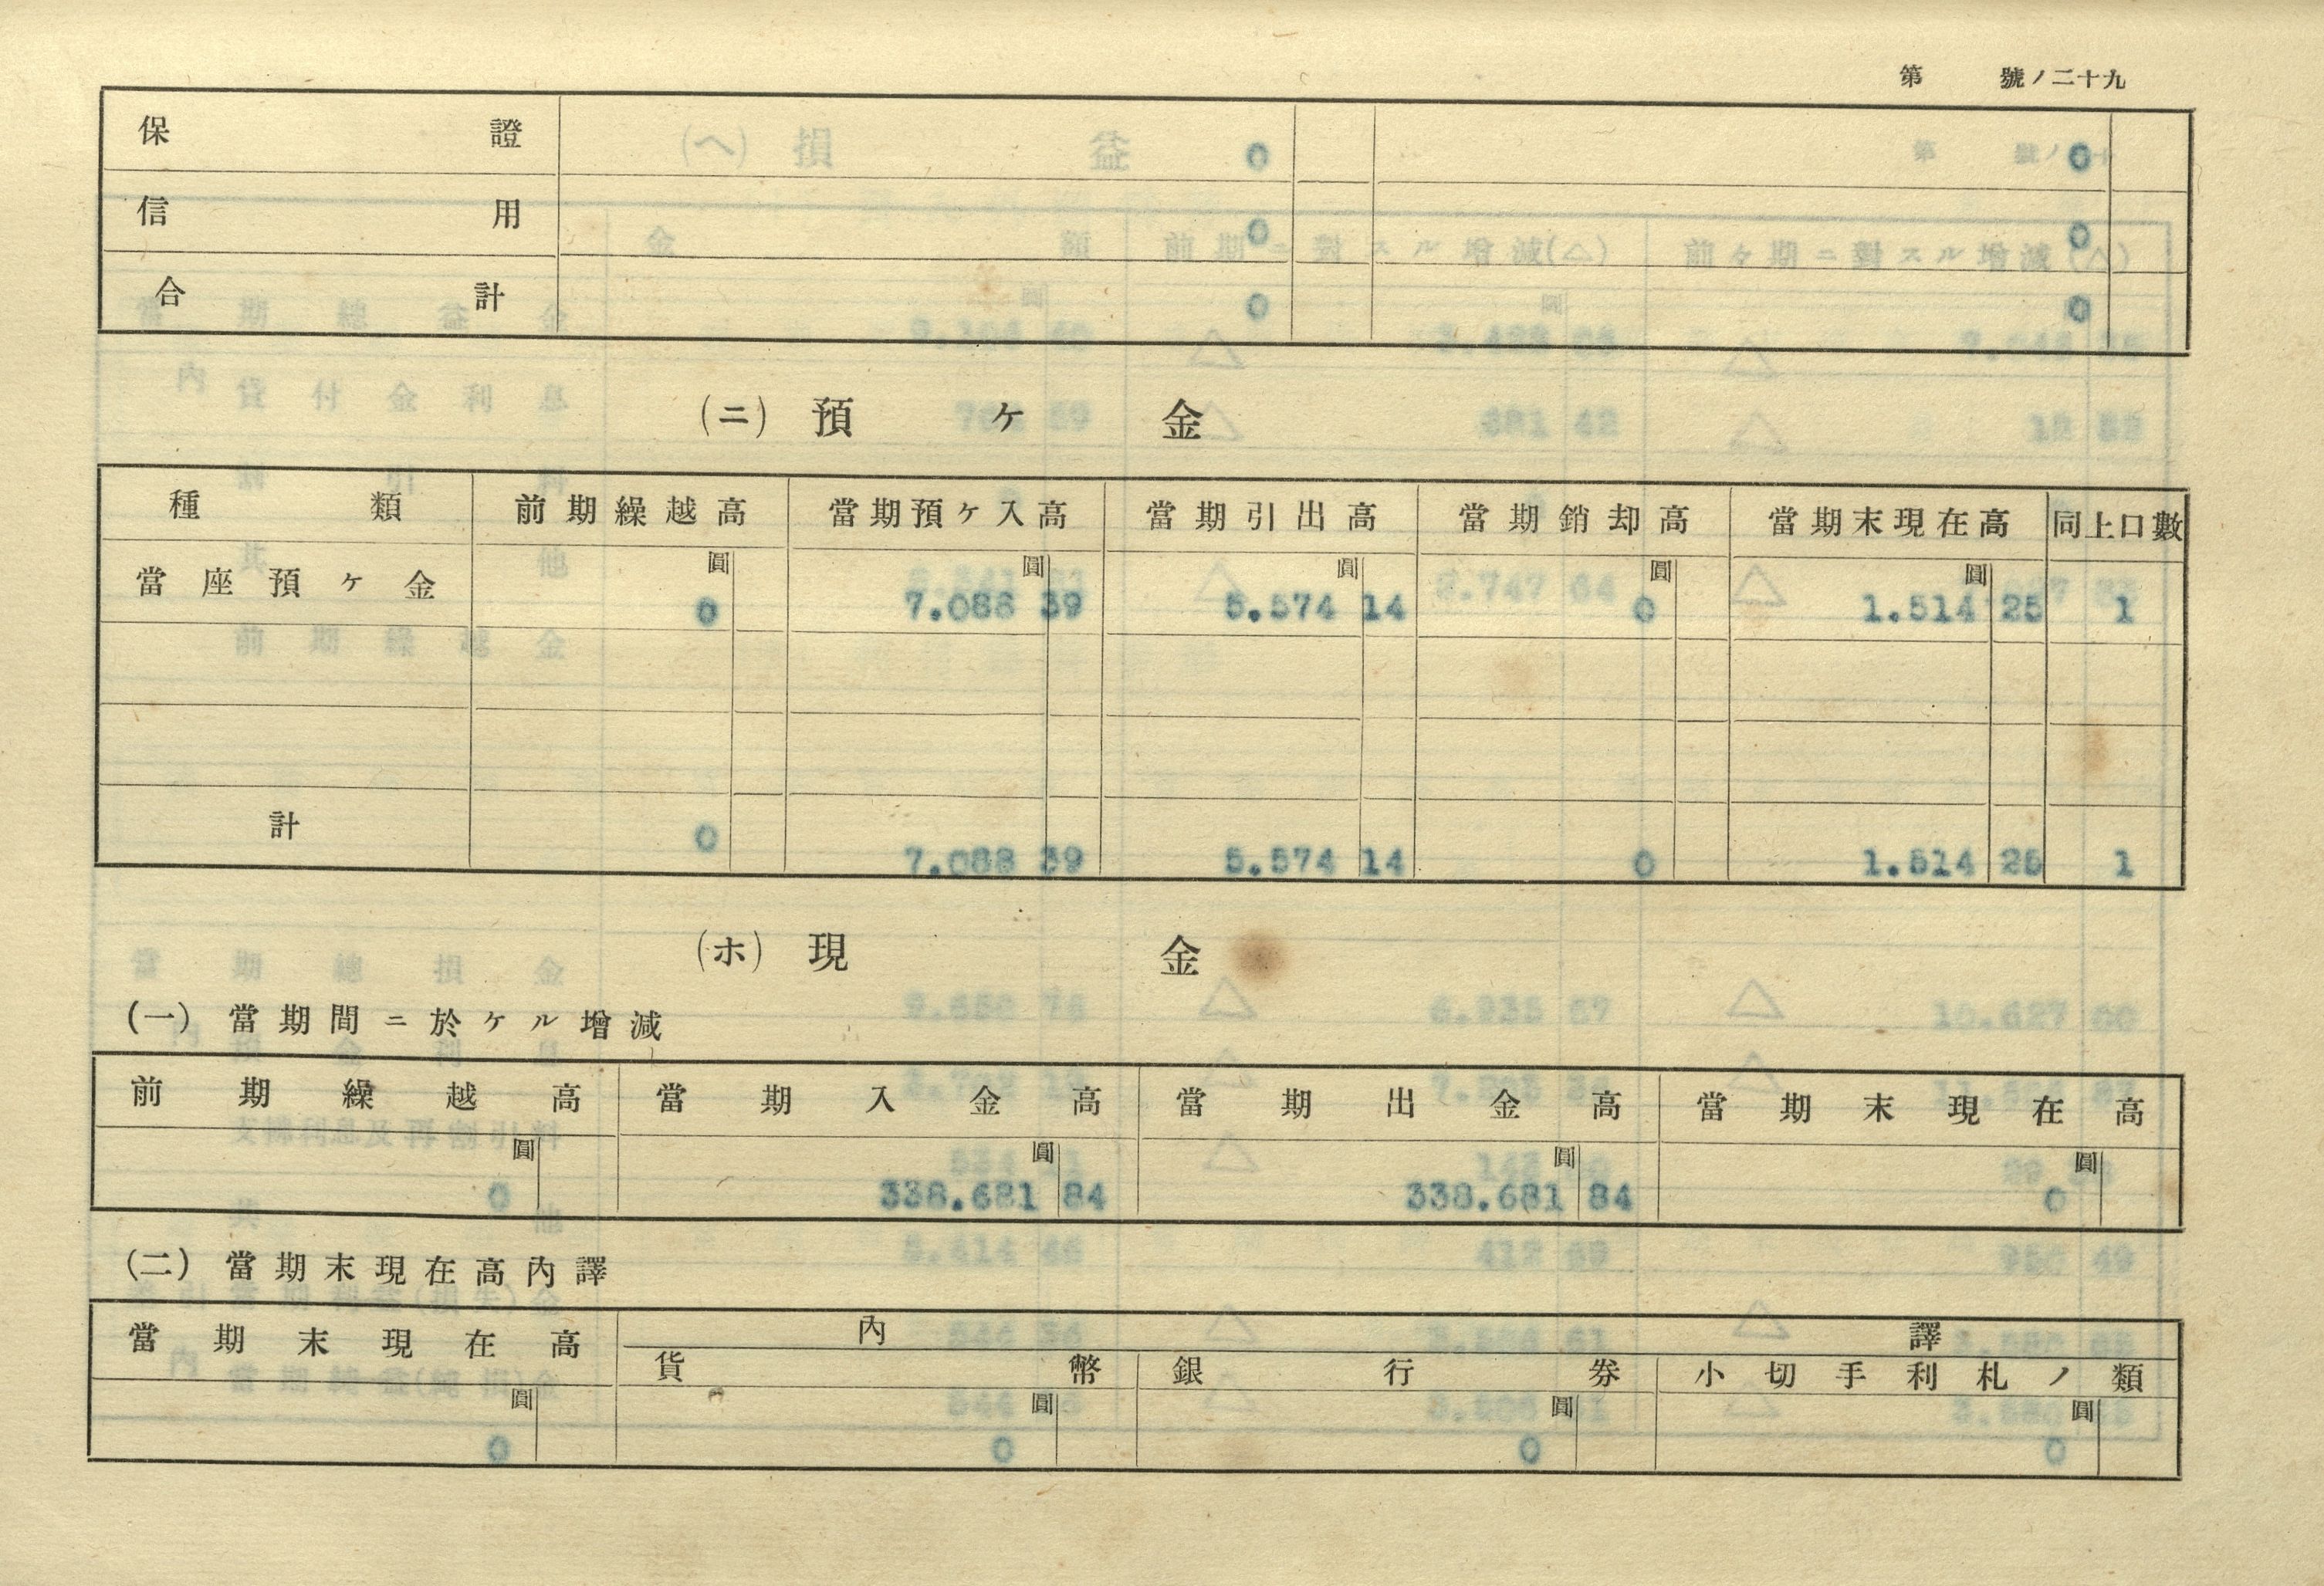 第 號ノ二十九
保證 0 0
信用 0 0
合計 0 0
(ニ) 預ヶ金
種類 前期繰越高 當期預ヶ入高 當期引出高 當期銷却高 當期末現在高 同上口數
圓 圓 圓 圓 圓
當座預ヶ金 0 7.088 39 5.574 14 0 1.514 25 1
計 0 7.088 39 5.574 14 0 1.514 25 1
(ホ) 現金
(一) 當期間ニ於ケル增減
前期繰越高 當期入金高 當期出金高 當期末現在高
圓 圓 圓 圓
0 338.681 84 338.681 84 0
(二) 當期末現在高內譯
當期末現在高 內譯
貨幣 銀行券 小切手利札ノ類
圓 圓 圓 圓
0 0 0 0